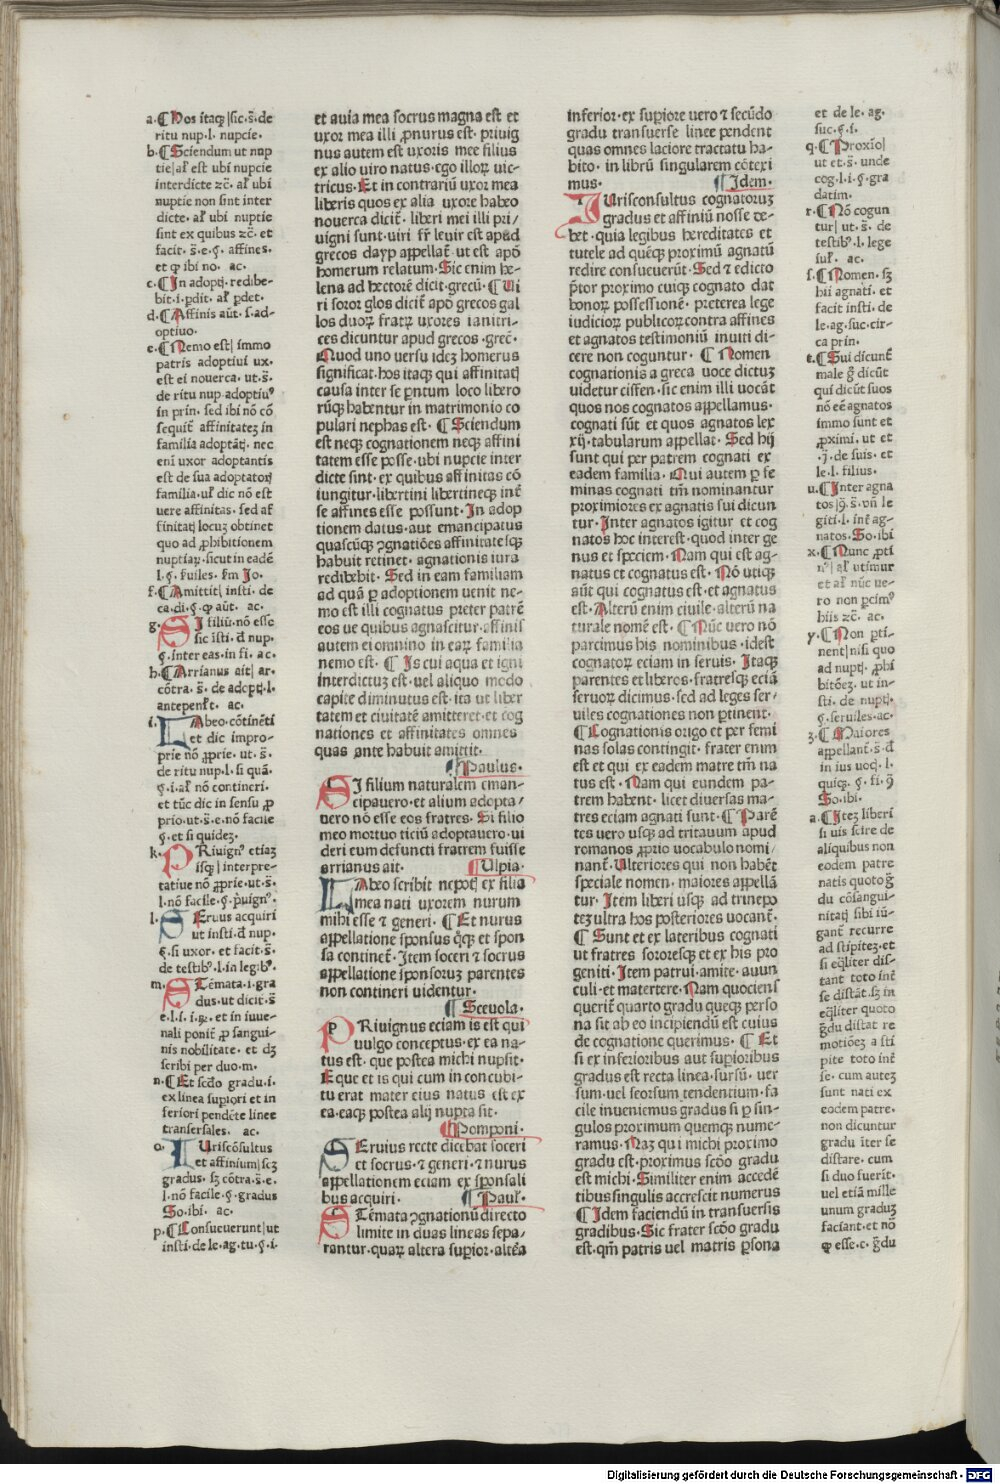 a. ¶ Hos itaq; |sic. s̄. de
ritu nup. l. nupcie.
b. ¶ Sciendum ut nup
tie| al' est ubi nupcie
interdicte ⁊c̄. al' ubi
nuptie non sint inter
dicte. al' ubi nuptie
sint ex quibus ⁊c̄. et
facit. s̄. e. §. affines.
et ꝙ ibi no. ac.
c. ¶ In adopti. redibe-
bit. i. pdit. al' pdet.
d. ¶ Affinis aūt. s. ad-
optiuo.
e. ¶ Nemo est| immo
patris adoptiui ux.
est ei nouerca. ut. s̄.
de ritu nup. adoptiuꝰ
in prin. sed ibi nō cō
sequit̄ affinitatez in
familia adoptāt. nec
enī uxor adoptantis
est de sua adoptatori
familia. ul' dic nō est
uere affinitas. sed af
finitatj locuz obtinet
quo ad ꝓhibitionem
nuptiaꝝ. sicut in eadē
l. §. ſ̄uiles. ſm Jo.
f. ¶ Amittit| insti. de
ca. di. §. ꝙ aūt. ac.
g. SI filiū. nō esse
sic isti. đ nup.
§. inter eas. in fi. ac.
h. ¶ Arrianus ait| ar.
cōtra. s̄. de adcptj. l.
antepenl't. ac.
i. LAbeo. cōtinēti
et dic impro-
prie nō ꝓprie. ut. s̄.
de ritu nup. l. si quā.
§. i. al' nō contineri.
et tūc dic in sensu ꝓ
prio. ut. s̄. e. nō facile
§. et si quidez.
k. PRiuignꝰ etiaz
isq; | interpre-
tatiue nō ꝓprie. ut. s̄.
l. nō facile. §. p̄uignꝰ.
l. SEruus acquiri
ut insti. đ nup.
§. si uxor. et facit. s̄.
de testibꝰ. l. in legibꝰ.
m. STēmata. i. gra
dus. ut dicit. s̄
e. l. i. i. ꝗ. et in iuue-
nali ponit̄ ꝓ sangui-
nis nobilitate. et dz
scribi per duo. m.
n. ¶ Et scd̄o gradu. i.
ex linea supiori et in
feriori pendēte linee
transersales. ac.
o. IUriscōsultus
et affinium| scz
gradus. sz cōtra. s̄. e.
l. nō facile. §. gradus
So. ibi. ac.
p. ¶ Consueuerunt| ut
insti. de le. ag. tu. §. i.
et auia mea socrus magna est et
uxor mea illi ꝓnurus est. priuig
nus autem est uxoris mee filius
ex alio uiro natus. ego illoꝝ uic-
tricus. Et in contrariū uxor mea
liberis quos ex alia uxore habeo
nouerca dicit̄. liberi mei illi pri/
uigni sunt. uiri fr̄ leuir est apud
grecos dayp appellat̄. ut est apō
homerum relatum. Sic enim he-
lena ad hectorē dicit. grecū. ¶ Ui
ri soror glos dicit̄ apō grecos gal
los duoꝝ fratꝝ uxores ianitri-
ces dicuntur apud grecos. grec̄.
Quod uno uersu idez homerus
significat. hos itaq; qui affinitatj
causa inter se pntum loco libero
rūq; habentur in matrimonio co
pulari nephas est. ¶ Sciendum
est neq; cognationem neq; affini
tatem esse posse. ubi nupcie inter
dicte sint. ex quibus affinitas cō
iungitur. libertini libertineq; int̄
se affines esse possunt. In adop
tionem datus. aut emancipatus
quascūq; ꝯgnatiōes affinitatesq;
habuit retinet. agnationis iura
redibebit. Sed in eam familiam
ad quā p adoptionem uenit ne-
mo est illi cognatus preter patrē
eos ue quibus agnascitur. affinis
autem ei omnino in eaꝝ familia
nemo est. ¶ Is cui aqua et igni
interdictuz est. uel aliquo modo
capite diminutus est. ita ut liber
tatem et ciuitatē amitteret. et cog
nationes et affinitates omnes
quas ante habuit amittit.
¶ Paulus.
SI filium naturalem eman-
cipauero. et alium adopta/
uero nō esse eos fratres. Si filio
meo mortuo ticiū adoptauero. ui
deri eum defuncti fratrem fuisse
arrianus ait. ¶ Ulpia.
LAbeo scribit nepotj ex filia
mea nati uxorem nurum
mihi esse ⁊ generi. ¶ Et nurus
appellatione sponsus q̄q; et spon
sa continet̄. Item soceri ⁊ socrus
appellatione sponsoruz parentes
non contineri uidentur.
¶ Sceuola.
PRiuignus eciam is est qui
uulgo conceptus. ex ea na-
tus est. que postea michi nupsit.
Eque et is qui cum in concubi-
tu erat mater eius natus est ex
ea. eaq; postea alij nupta sit.
¶ Pomponi.
SEruius recte dicebat soceri
et socrus. ⁊ generi. ⁊ nurus
appellationem eciam ex sponsali
bus acquiri. ¶ Paul'.
STēmata ꝯgnationū directo
limite in duas lineas sepa/
rantur. quaꝝ altera supior. altēa
inferior. ex supiore uero ⁊ secūdo
gradu transuerse linee pendent
quas omnes laciore tractatu ha-
bito. in librū singularem cōtexi
mus. ¶ Idem.
IUrisconsultus cognatoruz
gradus et affiniū nosse de-
bet. quia legibus hereditates et
tutele ad quēq; proximū agnatū
redire consueuerūt. Sed ⁊ edicto
p̄tor proximo cuiq; cognato dat
bonoꝝ possessionē. preterea lege
iudicioꝝ publicoꝝ contra affines
et agnatos testimoniū inuiti di-
cere non coguntur. ¶ Nomen
cognationis a greca uoce dictuz
uidetur ciffen. sic enim illi uocāt
quos nos cognatos appellamus.
cognati sūt et quos agnatos lex
xij. tabularum appellat. Sed hij
sunt qui per patrem cognati ex
eadem familia. Qui autem p fe
minas cognati tm̄ nominantur
proximiores ex agnatis sui dicun
tur. Inter agnatos igitur et cog
natos hoc interest. quod inter ge
nus et speciem. Nam qui est ag-
natus et cognatus est. Nō utiq;
aūt qui cognatus est. et agnatus
est. Alterū enim ciuile. alterū na
turale nomē est. ¶ Nūc uero nō
parcimus his nominibus. idest
cognatoꝝ eciam in seruis. Itaq;
parentes et liberos. fratresq; eciā
seruoꝝ dicimus. sed ad leges ser/
uiles cognationes non ptinent.
¶ Cognationis origo et per femi
nas solas contingit. frater enim
est et qui ex eadem matre tm̄ na
tus est. Nam qui eundem pa-
trem habent. licet diuersas ma-
tres eciam agnati sunt. ¶ Parē
tes uero usq; ad tritauum apud
romanos ꝓprio uocabulo nomi/
nant̄. Ulteriores qui non habēt
speciale nomen. maiores appellā
tur. Item liberi usq; ad trinepo
tez ultra hos posteriores uocant̄.
¶ Sunt et ex lateribus cognati
ut fratres sororesq; et ex his pro
geniti. Item patrui. amite. auun
culi. et matertere. Nam quociens
querit̄ quarto gradu queq; perso
na sit ab eo incipiendū est cuius
de cognatione querimus. ¶ Et
si ex inferioribus aut supioribus
gradus est recta linea. sursū. uer
sum. uel seorsum tendentium. fa
cile inueniemus gradus si p sin-
gulos proximum quemq; nume-
ramus. Naz qui michi proximo
gradu est. proximus scd̄o gradu
est michi. Similiter enim accedē
tibus singulis accrescit numerus
¶ Idem faciendū in transuersis
gradibus. Sic frater scd̄o gradu
est. qm̄ patris uel matris psona
et de le. ag.
suc. §. i.
q. ¶ Proxio|
ut et. s̄. unde
cog. l. i. §. gra
datim.
r. ¶ Nō cogun
tur| ut. s̄. de
testibꝰ. l. lege
iul'. ac.
s. ¶ Nomen. sz
hii agnati. et
facit insti. de
le. ag. suc. cir-
ca prin.
t. ¶ Sui dicunt̄
male ḡ dicūt
qui dicūt suos
nō eē agnatos
immo sunt et
ꝓximi. ut et
.j. de suis. et
le. l. filius.
u. ¶ Inter agna
tos| ꝯ̄. s̄. vn̄ le
giti. l. int̄ ag-
natos. So. ibi
x. ¶ Nunc ꝓti
nꝰ| al' utimur
et al' nūc ue-
ro non pcimꝰ
hiis ⁊c̄. ac.
y. ¶ Non pti-
nent| nisi quo
ad nuptj. ꝓhi
bitōez. ut in-
sti. de nuptj.
§. seruiles. ac.
z. ¶ Maiores
appellant̄. s̄. đ
in ius uoc. l.
quiq;. §. fi. ꝯ̄
So. ibi.
a. ¶ Itez liberi
si uis scire de
aliquibus non
eodem patre
natis quoto ḡ
du cōsangui-
nitatj sibi iū-
gant̄ recurre
ad stipitez. et
si eq̄liter dis-
tant toto int̄
se distāt. sz in
eq̄liter quoto
ḡdu distat re
motiōez a sti
pite toto int̄
se. cum autez
sunt nati ex
eodem patre.
non dicuntur
gradu iter se
distare. cum
si duo fuerīt.
uel etiā mille
unum graduz
faciant. et nō
ꝙ esse. c. ḡdu
Digitalisierung gefördert durch die Deutsche Forschungsgemeinschaft - DFG